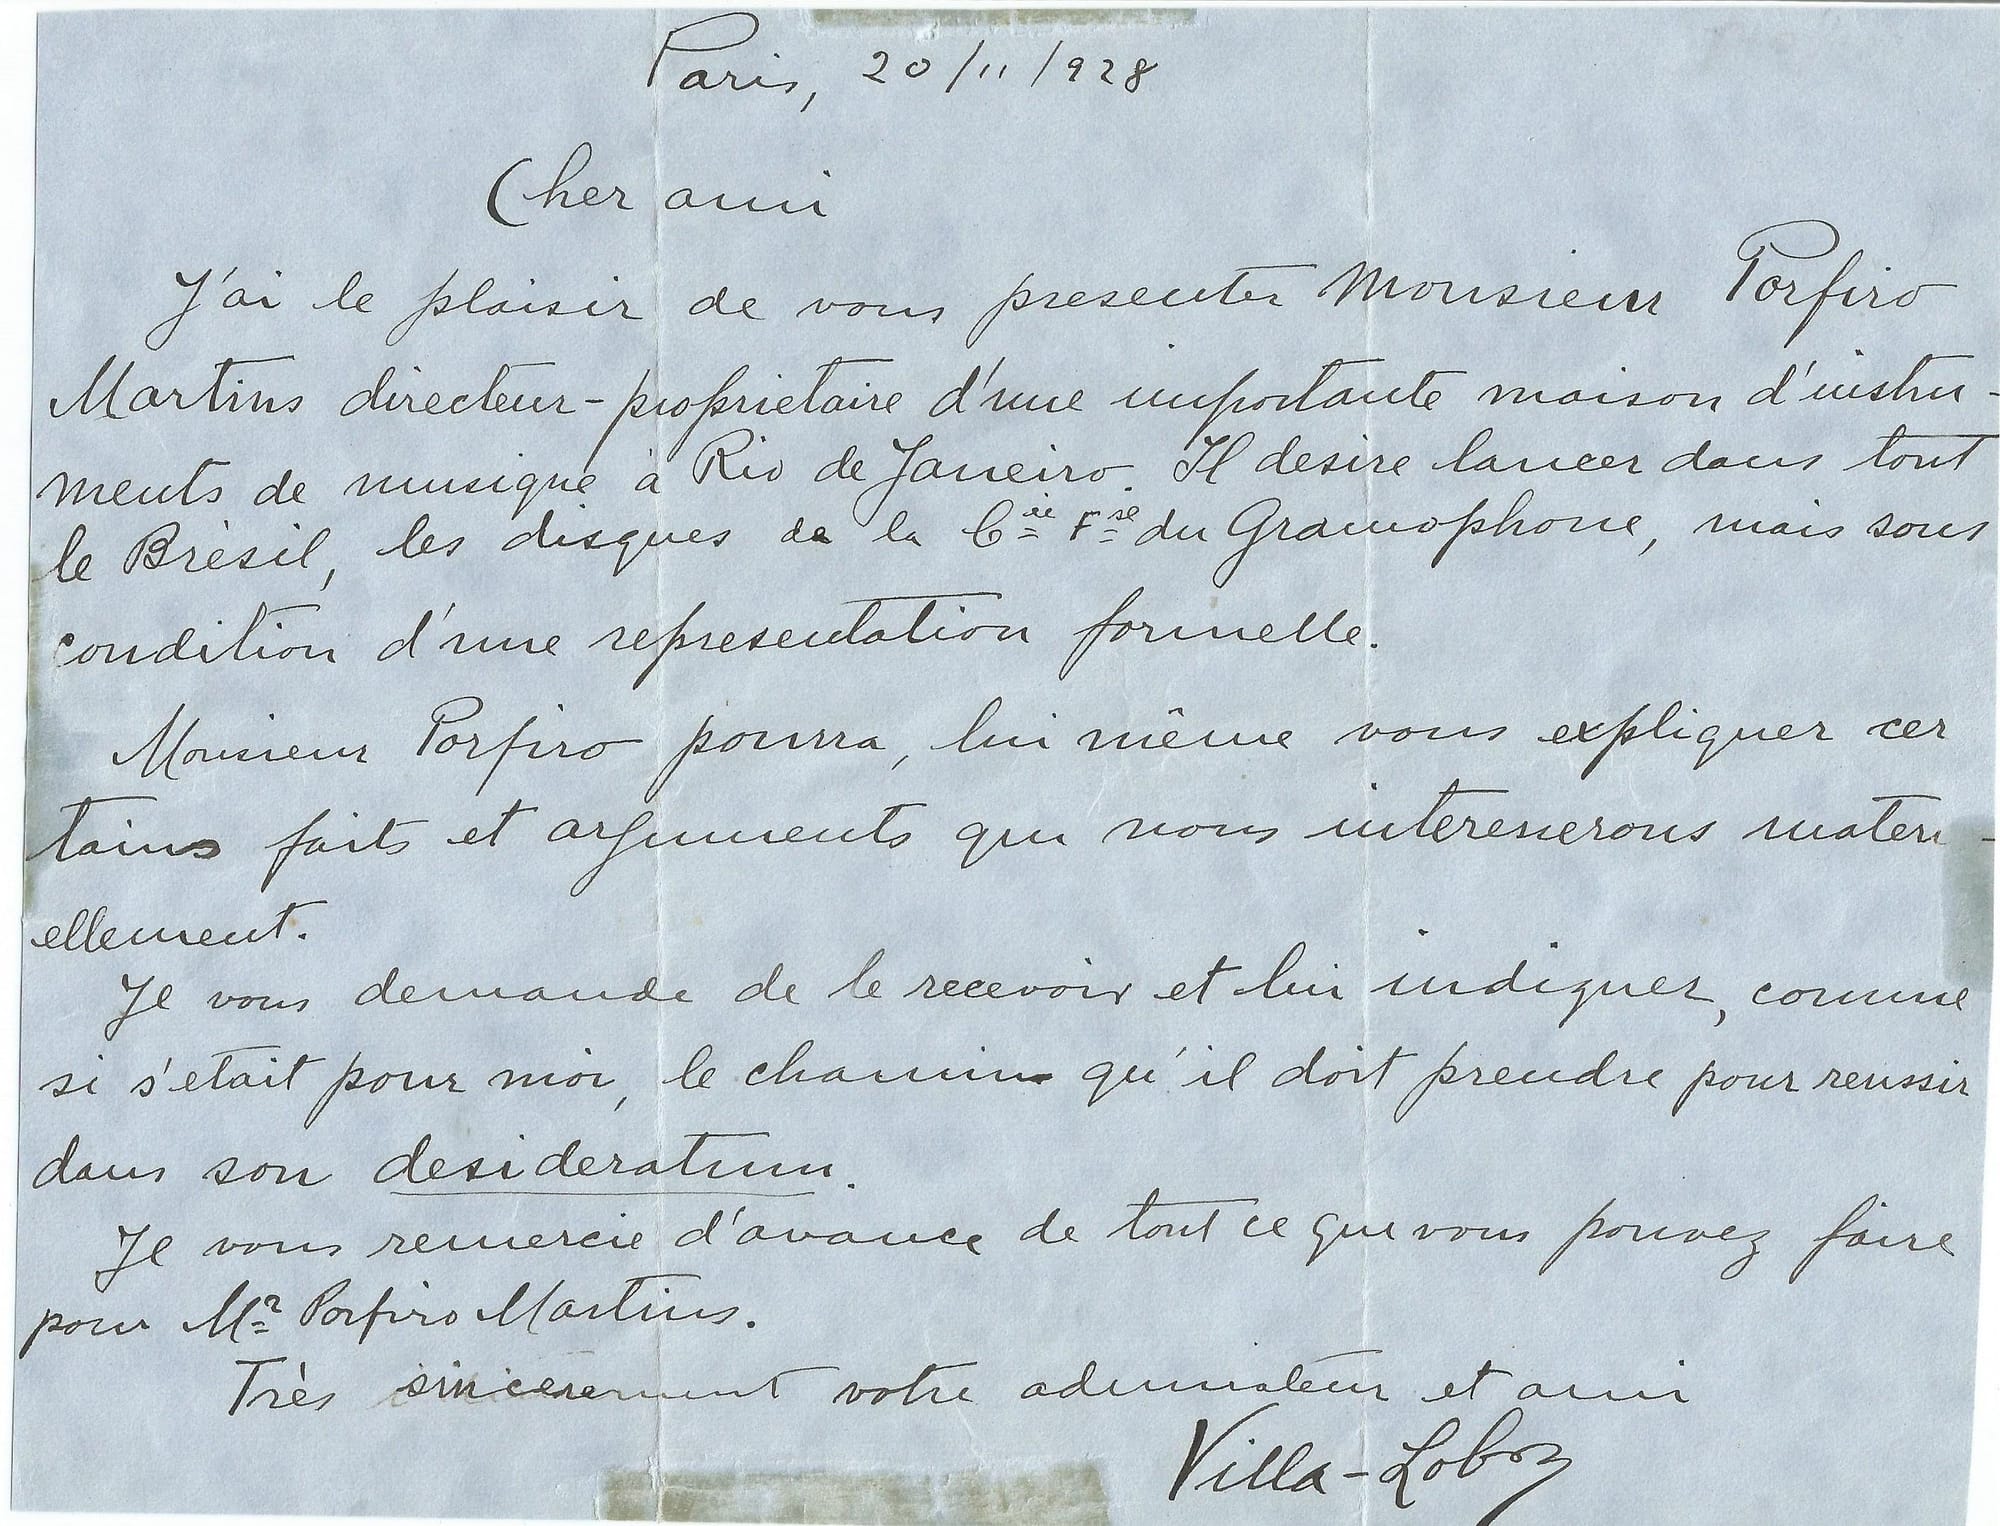 Paris, 20/11/928
Cher ami
J'ai le plaisir de vous presenter Monsieur Porfiro
Martins directeur-proprietaire d'une importante maison d'instru-
ments de musique à Rio de Janeiro. Il desire lancer dans tout
le Brèsil, les disques de la Cie Fse du Gramophone, mais sous
condition d'une representation formelle.
Monsieur Porfiro pourra, lui même vous expliquer cer
tains faits et arguments qui nous interesserons materi-
ellement.
Je vous demande de le recevoir et lui indiquer, comme
si s'etait pour moi, le chamin qu'il doit prendre pour reussir
dans son desideratum.
Je vous remercie d'avance de tout ce que vous pouvez faire
pour Mr Porfiro Martins.
Très sincerement votre admirateur et ami
Villa-Lobos